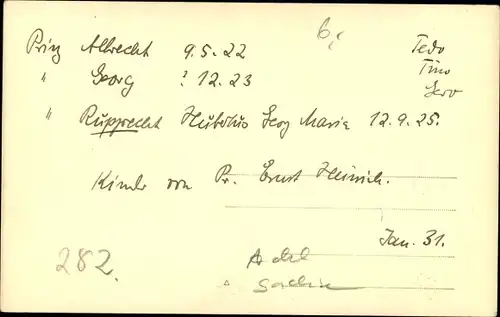 6,-
Prinz Albrecht 9.5.22 Tedo
" Georg ? 12.23 Tino
Gero
" Rupprecht Hubertus Georg Maria 12.9.25.
Kinder von Pr. Ernst Heinrich.
Jan. 31.
282. Adel
Sachsen